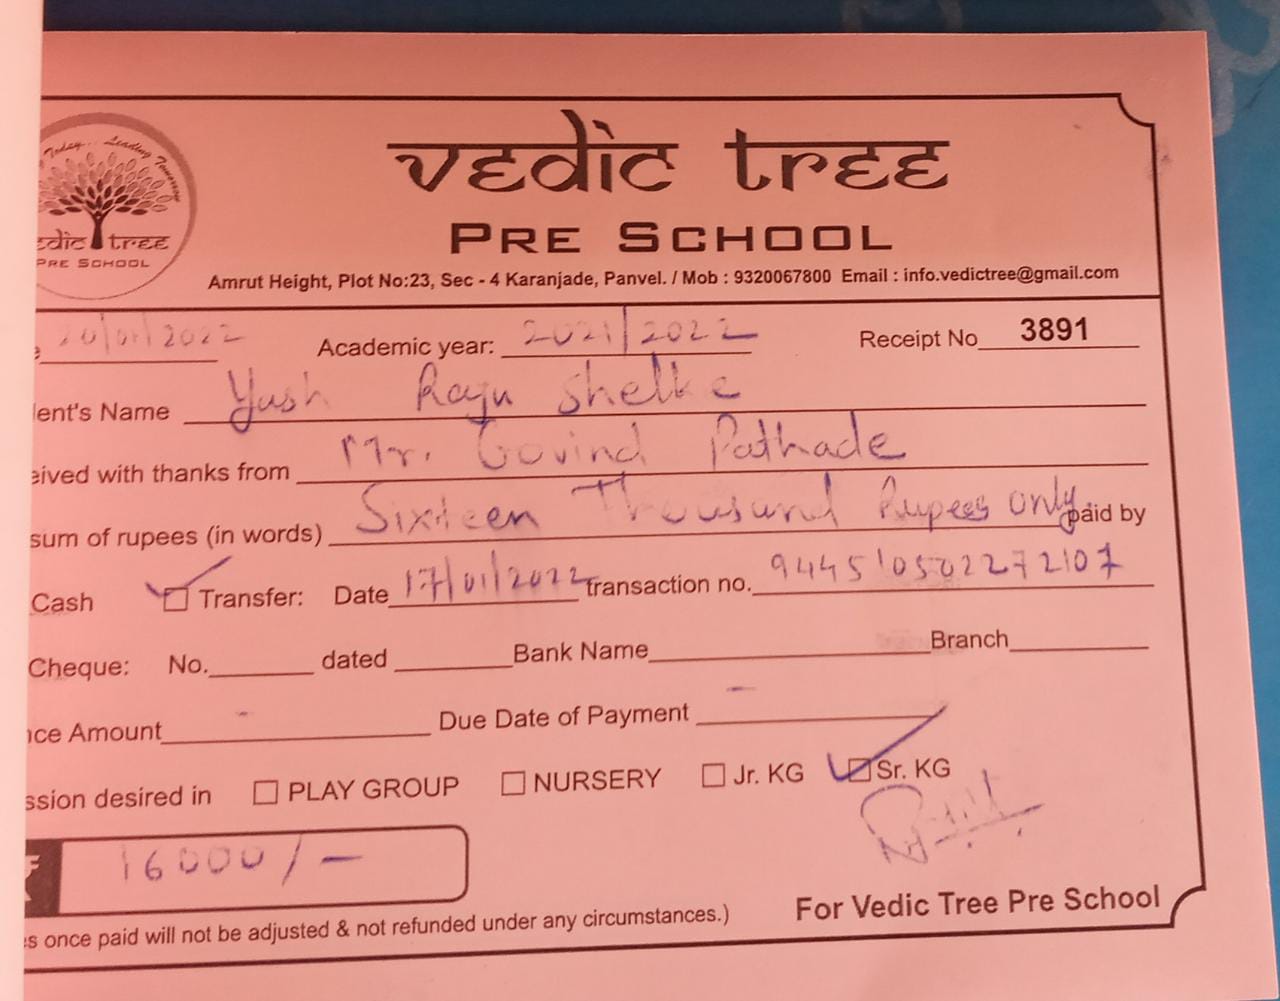 Today... Leading Tomorrow
edic tree
PRE SCHOOL
vedic tree
PRE SCHOOL
Amrut Height, Plot No:23, Sec - 4 Karanjade, Panvel. / Mob : 9320067800 Email : info.vedictree@gmail.com
e 20/01/2022 Academic year: 2021/2022 Receipt No 3891
ent's Name Yash Raju Shelke
eived with thanks from Mr. Govind Pathade
sum of rupees (in words) Sixteen Thousand Rupees only paid by
Cash Transfer: Date 17/01/2022 transaction no. 944510502272107
Cheque: No. dated Bank Name Branch
nce Amount - Due Date of Payment -
ssion desired in PLAY GROUP NURSERY Jr. KG Sr. KG
₹ 16000/-
s once paid will not be adjusted & not refunded under any circumstances.) For Vedic Tree Pre School